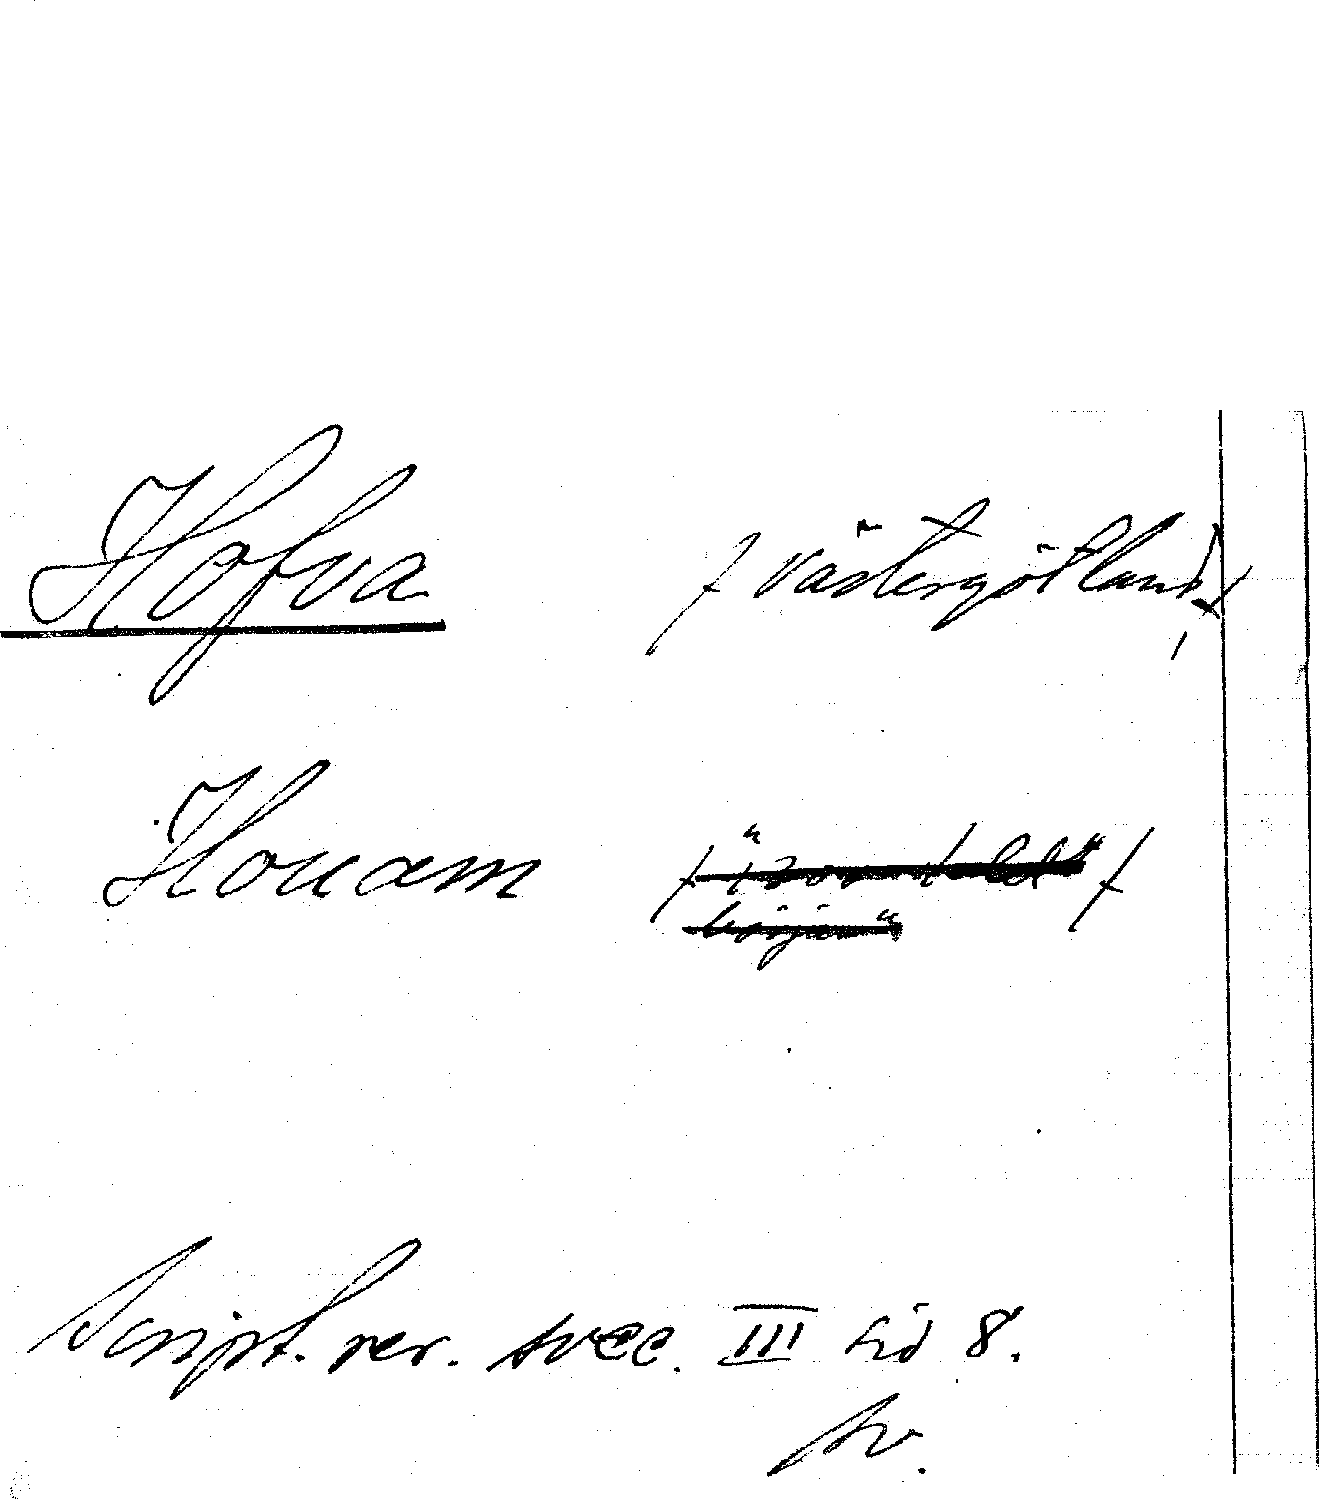 Hofva / Västergötland /
Houam / /
Script. rer. svec. III sid 8.
sv.